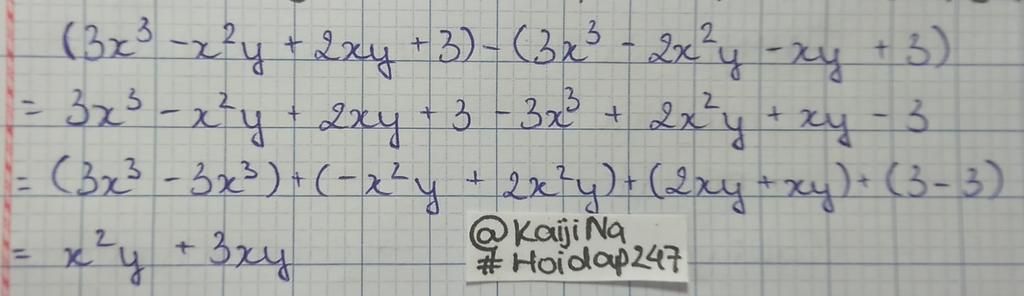 (3x³ - x²y + 2xy + 3) - (3x³ - 2x²y - xy + 3)
= 3x³ - x²y + 2xy + 3 - 3x³ + 2x²y + xy - 3
= (3x³ - 3x³) + (-x²y + 2x²y) + (2xy + xy) + (3 - 3)
= x²y + 3xy
@KaijiNa
#Hoidap247